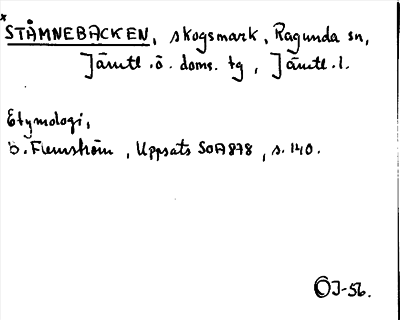 *STÅMNEBACKEN, skogsmark, Ragunda sn,
Jämtl. ö. doms. tg, Jämtl. l.
Etymologi,
B. Flemström, Uppsats SOA 878, s. 140.
OJ-56.